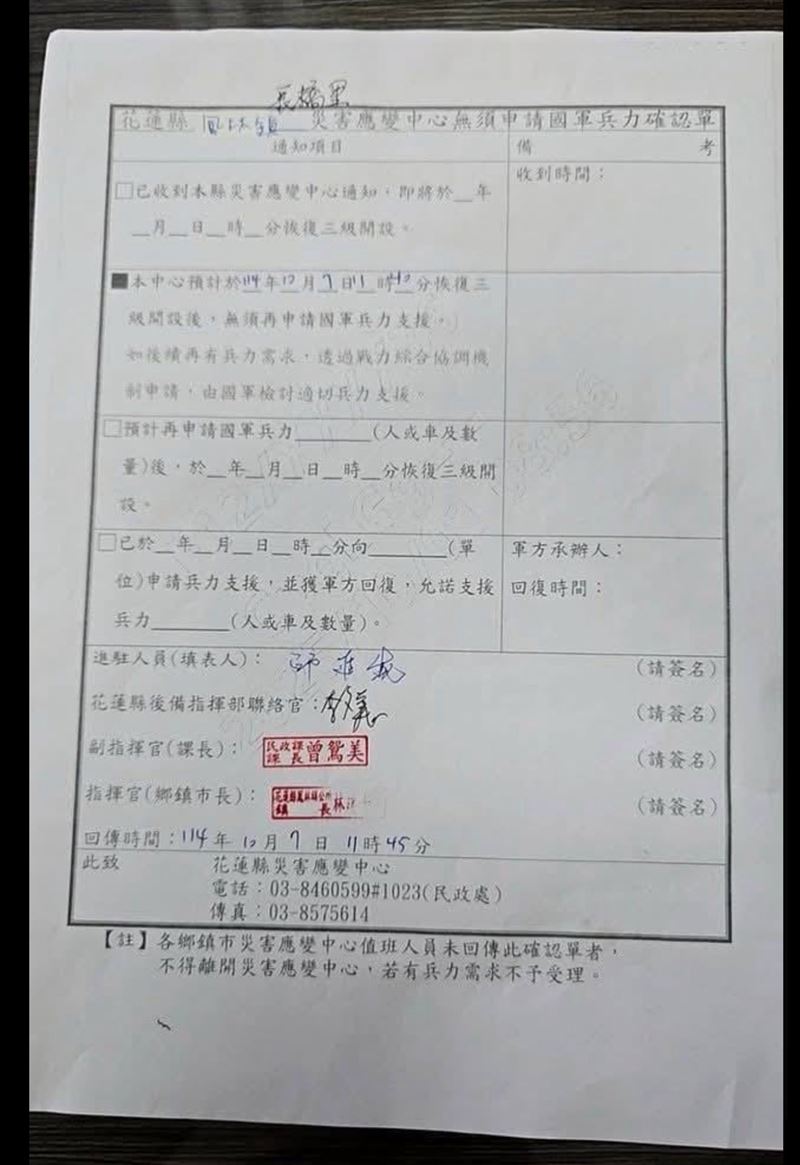 長橋里
花蓮縣 鳳林鎮 災害應變中心無須申請國軍兵力確認單
通知項目
備 考
□已收到本縣災害應變中心通知，即將於__年
__月__日__時__分恢復三級開設。
收到時間：
■本中心預計於114年10月7日11時40分恢復三
級開設後，無須再申請國軍兵力支援。
如後續再有兵力需求，透過戰力綜合協調機
制申請，由國軍檢討適切兵力支援。
□預計再申請國軍兵力________(人或車及數
量)後，於__年__月__日__時__分恢復三級開
設。
□已於__年__月__日__時__分向________(單
位)申請兵力支援，並獲軍方回復，允諾支援
兵力________(人或車及數量)。
軍方承辦人：
回復時間：
進駐人員(填表人)： (請簽名)
花蓮縣後備指揮部聯絡官： (請簽名)
副指揮官(課長)： 民政課課長曾鴛美 (請簽名)
指揮官(鄉鎮市長)： 花蓮縣鳳林鎮公所鎮長林 (請簽名)
回傳時間：114年10月7日11時45分
此致 花蓮縣災害應變中心
電話：03-8460599#1023(民政處)
傳真：03-8575614
【註】各鄉鎮市災害應變中心值班人員未回傳此確認單者，
不得離開災害應變中心，若有兵力需求不予受理。